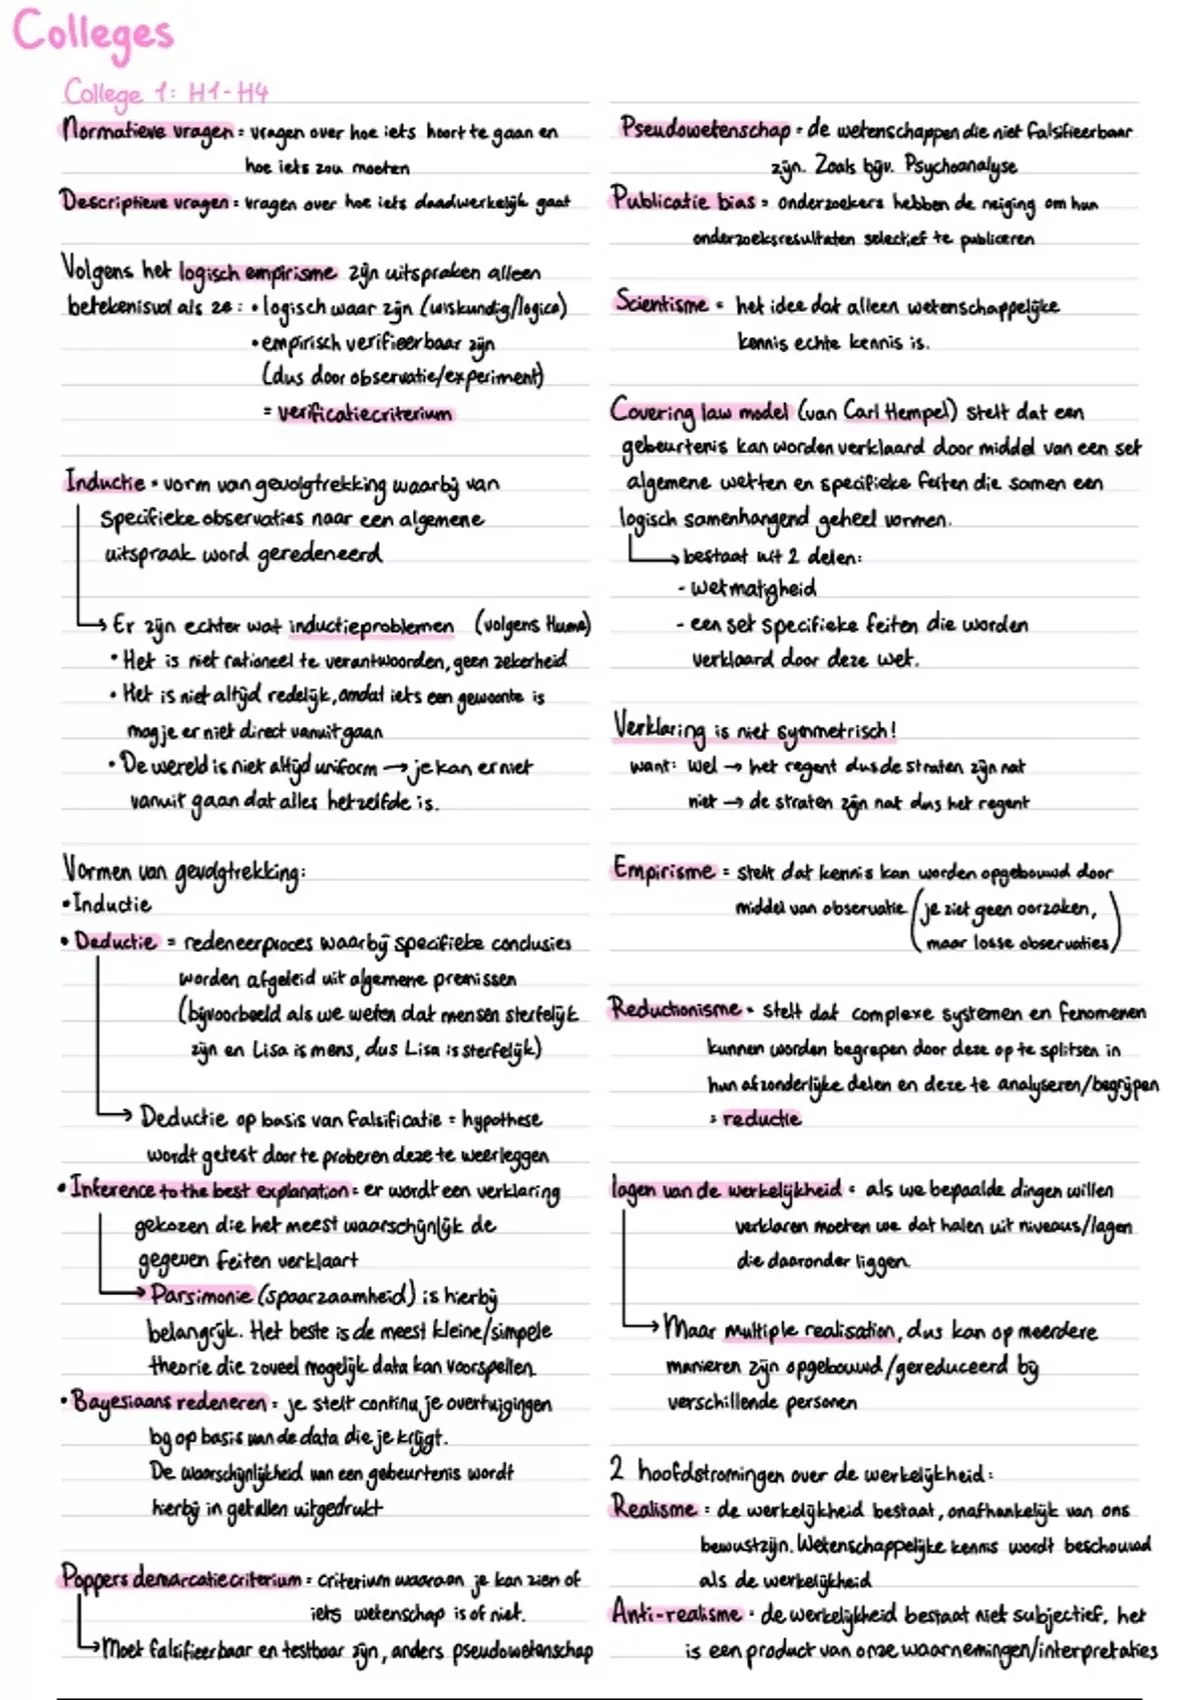 Colleges
College 1: H1-H4
Normatieve vragen = vragen over hoe iets hoort te gaan en
hoe iets zou moeten
Descriptieve vragen = vragen over hoe iets daadwerkelijk gaat
Volgens het logisch empirisme zijn uitspraken alleen
betekenisvol als ze: • logisch waar zijn (wiskundig/logica)
• empirisch verifieerbaar zijn
(dus door observatie/experiment)
= verificatiecriterium
Inductie = vorm van gevolgtrekking waarbij van
specifieke observaties naar een algemene
uitspraak word geredeneerd
→ Er zijn echter wat inductieproblemen (volgens Hume)
• Het is niet rationeel te verantwoorden, geen zekerheid
• Het is niet altijd redelijk, omdat iets een gewoonte is
mag je er niet direct vanuit gaan
• De wereld is niet altijd uniform → je kan er niet
vanuit gaan dat alles hetzelfde is.
Vormen van gevolgtrekking:
• Inductie
• Deductie = redeneerproces waarbij specifieke conclusies
worden afgeleid uit algemene premissen
(bijvoorbeeld als we weten dat mensen sterfelijk
zijn en Lisa is mens, dus Lisa is sterfelijk)
→ Deductie op basis van falsificatie = hypothese
wordt getest door te proberen deze te weerleggen
• Inference to the best explanation = er wordt een verklaring
gekozen die het meest waarschijnlijk de
gegeven feiten verklaart
→ Parsimonie (spaarzaamheid) is hierbij
belangrijk. Het beste is de meest kleine/simpele
theorie die zoveel mogelijk data kan voorspellen.
• Bayesiaans redeneren = je stelt continu je overtuigingen
bij op basis van de data die je krijgt.
De waarschijnlijkheid van een gebeurtenis wordt
hierbij in getallen uitgedrukt
Poppers demarcatiecriterium = criterium waaraan je kan zien of
iets wetenschap is of niet.
→ Moet falsifieerbaar en testbaar zijn, anders pseudowetenschap
Pseudowetenschap = de wetenschappen die niet falsifieerbaar
zijn. Zoals bijv. Psychoanalyse
Publicatie bias = onderzoekers hebben de neiging om hun
onderzoeksresultaten selectief te publiceren
Scientisme = het idee dat alleen wetenschappelijke
kennis echte kennis is.
Covering law model (van Carl Hempel) stelt dat een
gebeurtenis kan worden verklaard door middel van een set
algemene wetten en specifieke feiten die samen een
logisch samenhangend geheel vormen.
→ bestaat uit 2 delen:
- wetmatigheid
- een set specifieke feiten die worden
verklaard door deze wet.
Verklaring is niet symmetrisch!
want: wel → het regent dus de straten zijn nat
niet → de straten zijn nat dus het regent
Empirisme = stelt dat kennis kan worden opgebouwd door
middel van observatie (je ziet geen oorzaken,
maar losse observaties)
Reductionisme = stelt dat complexe systemen en fenomenen
kunnen worden begrepen door deze op te splitsen in
hun afzonderlijke delen en deze te analyseren/begrijpen
= reductie
lagen van de werkelijkheid = als we bepaalde dingen willen
verklaren moeten we dat halen uit niveaus/lagen
die daaronder liggen.
→ Maar multiple realisation, dus kan op meerdere
manieren zijn opgebouwd/gereduceerd bij
verschillende personen
2 hoofdstromingen over de werkelijkheid:
Realisme = de werkelijkheid bestaat, onafhankelijk van ons
bewustzijn. Wetenschappelijke kennis wordt beschouwd
als de werkelijkheid
Anti-realisme = de werkelijkheid bestaat niet subjectief, het
is een product van onze waarnemingen/interpretaties